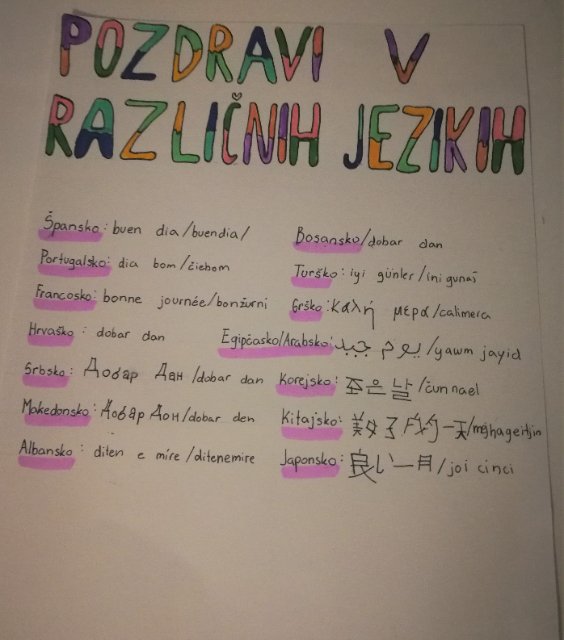 POZDRAVI V
RAZLIČNIH JEZIKIH
Špansko: buen dia/buendia/
Portugalsko: dia bom/čiebom
Francosko: bonne journée/bonžurni
Hrvaško: dobar dan
Srbsko: Добар Дан/dobar dan
Makedonsko: Добар Дон/dobar den
Albansko: diten e mire/ditenemire
Bosansko/dobar dan
Turško: iyi günler/ini gunaš
Grško: καλή μέρα/calimera
Egipčasko/Arabsko: يوم جيد/yawm jayid
Korejsko: 좋은 날/čun nael
Kitajsko: 美好的一天
Japonsko: 良い一日/joi cinci